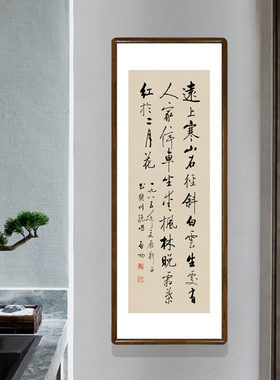 遠上寒山石徑斜白雲生處有
人家停車坐愛楓林晚霜葉
紅於二月花
一九八五年
啟功